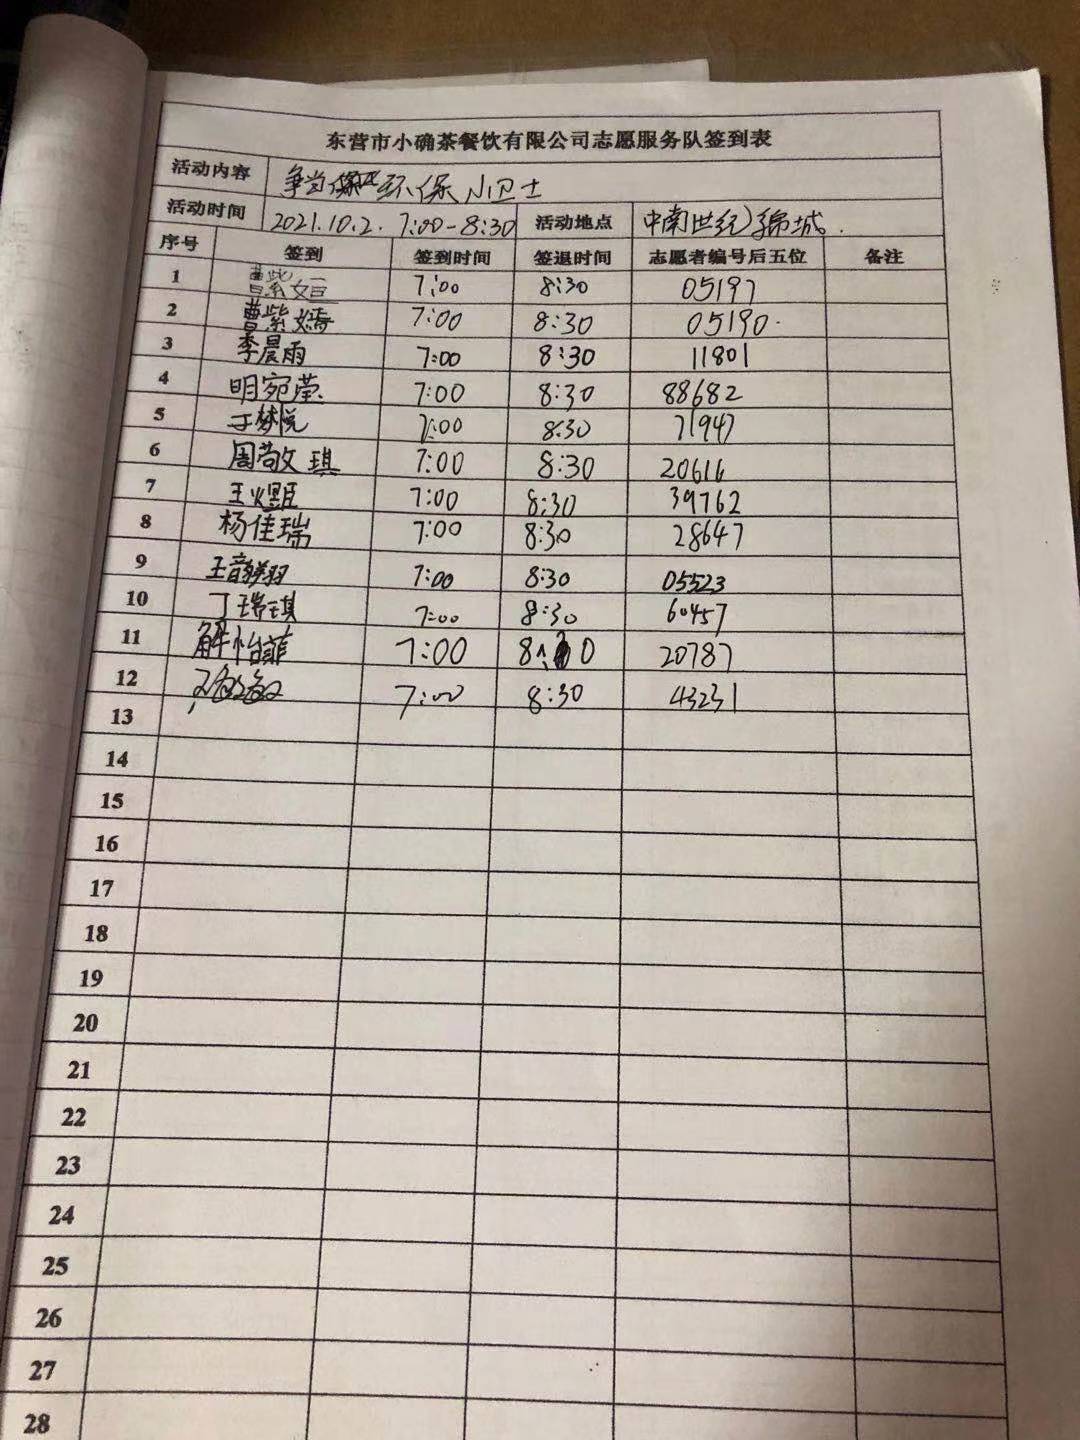 东营市小确茶餐饮有限公司志愿服务队签到表
活动内容 争当 环保小卫士
活动时间 2021.10.2. 7:00-8:30 活动地点 中南世纪锦城.
序号 签到 签到时间 签退时间 志愿者编号后五位 备注
1 曹紫妲 7:00 8:30 05197
2 曹紫嫣 7:00 8:30 05190.
3 季晨雨 7:00 8:30 11801
4 明宛莹 7:00 8:30 88682
5 于梦悦 7:00 8:30 71947
6 周敬文琪 7:00 8:30 20616
7 王煜臣 7:00 8:30 39762
8 杨佳瑞 7:00 8:30 28647
9 王 羽 7:00 8:30 05523
10 丁瑞琪 7:00 8:30 60457
11 解怡菲 7:00 8:30 20787
12 7:00 8:30 43231
13
14
15
16
17
18
19
20
21
22
23
24
25
26
27
28